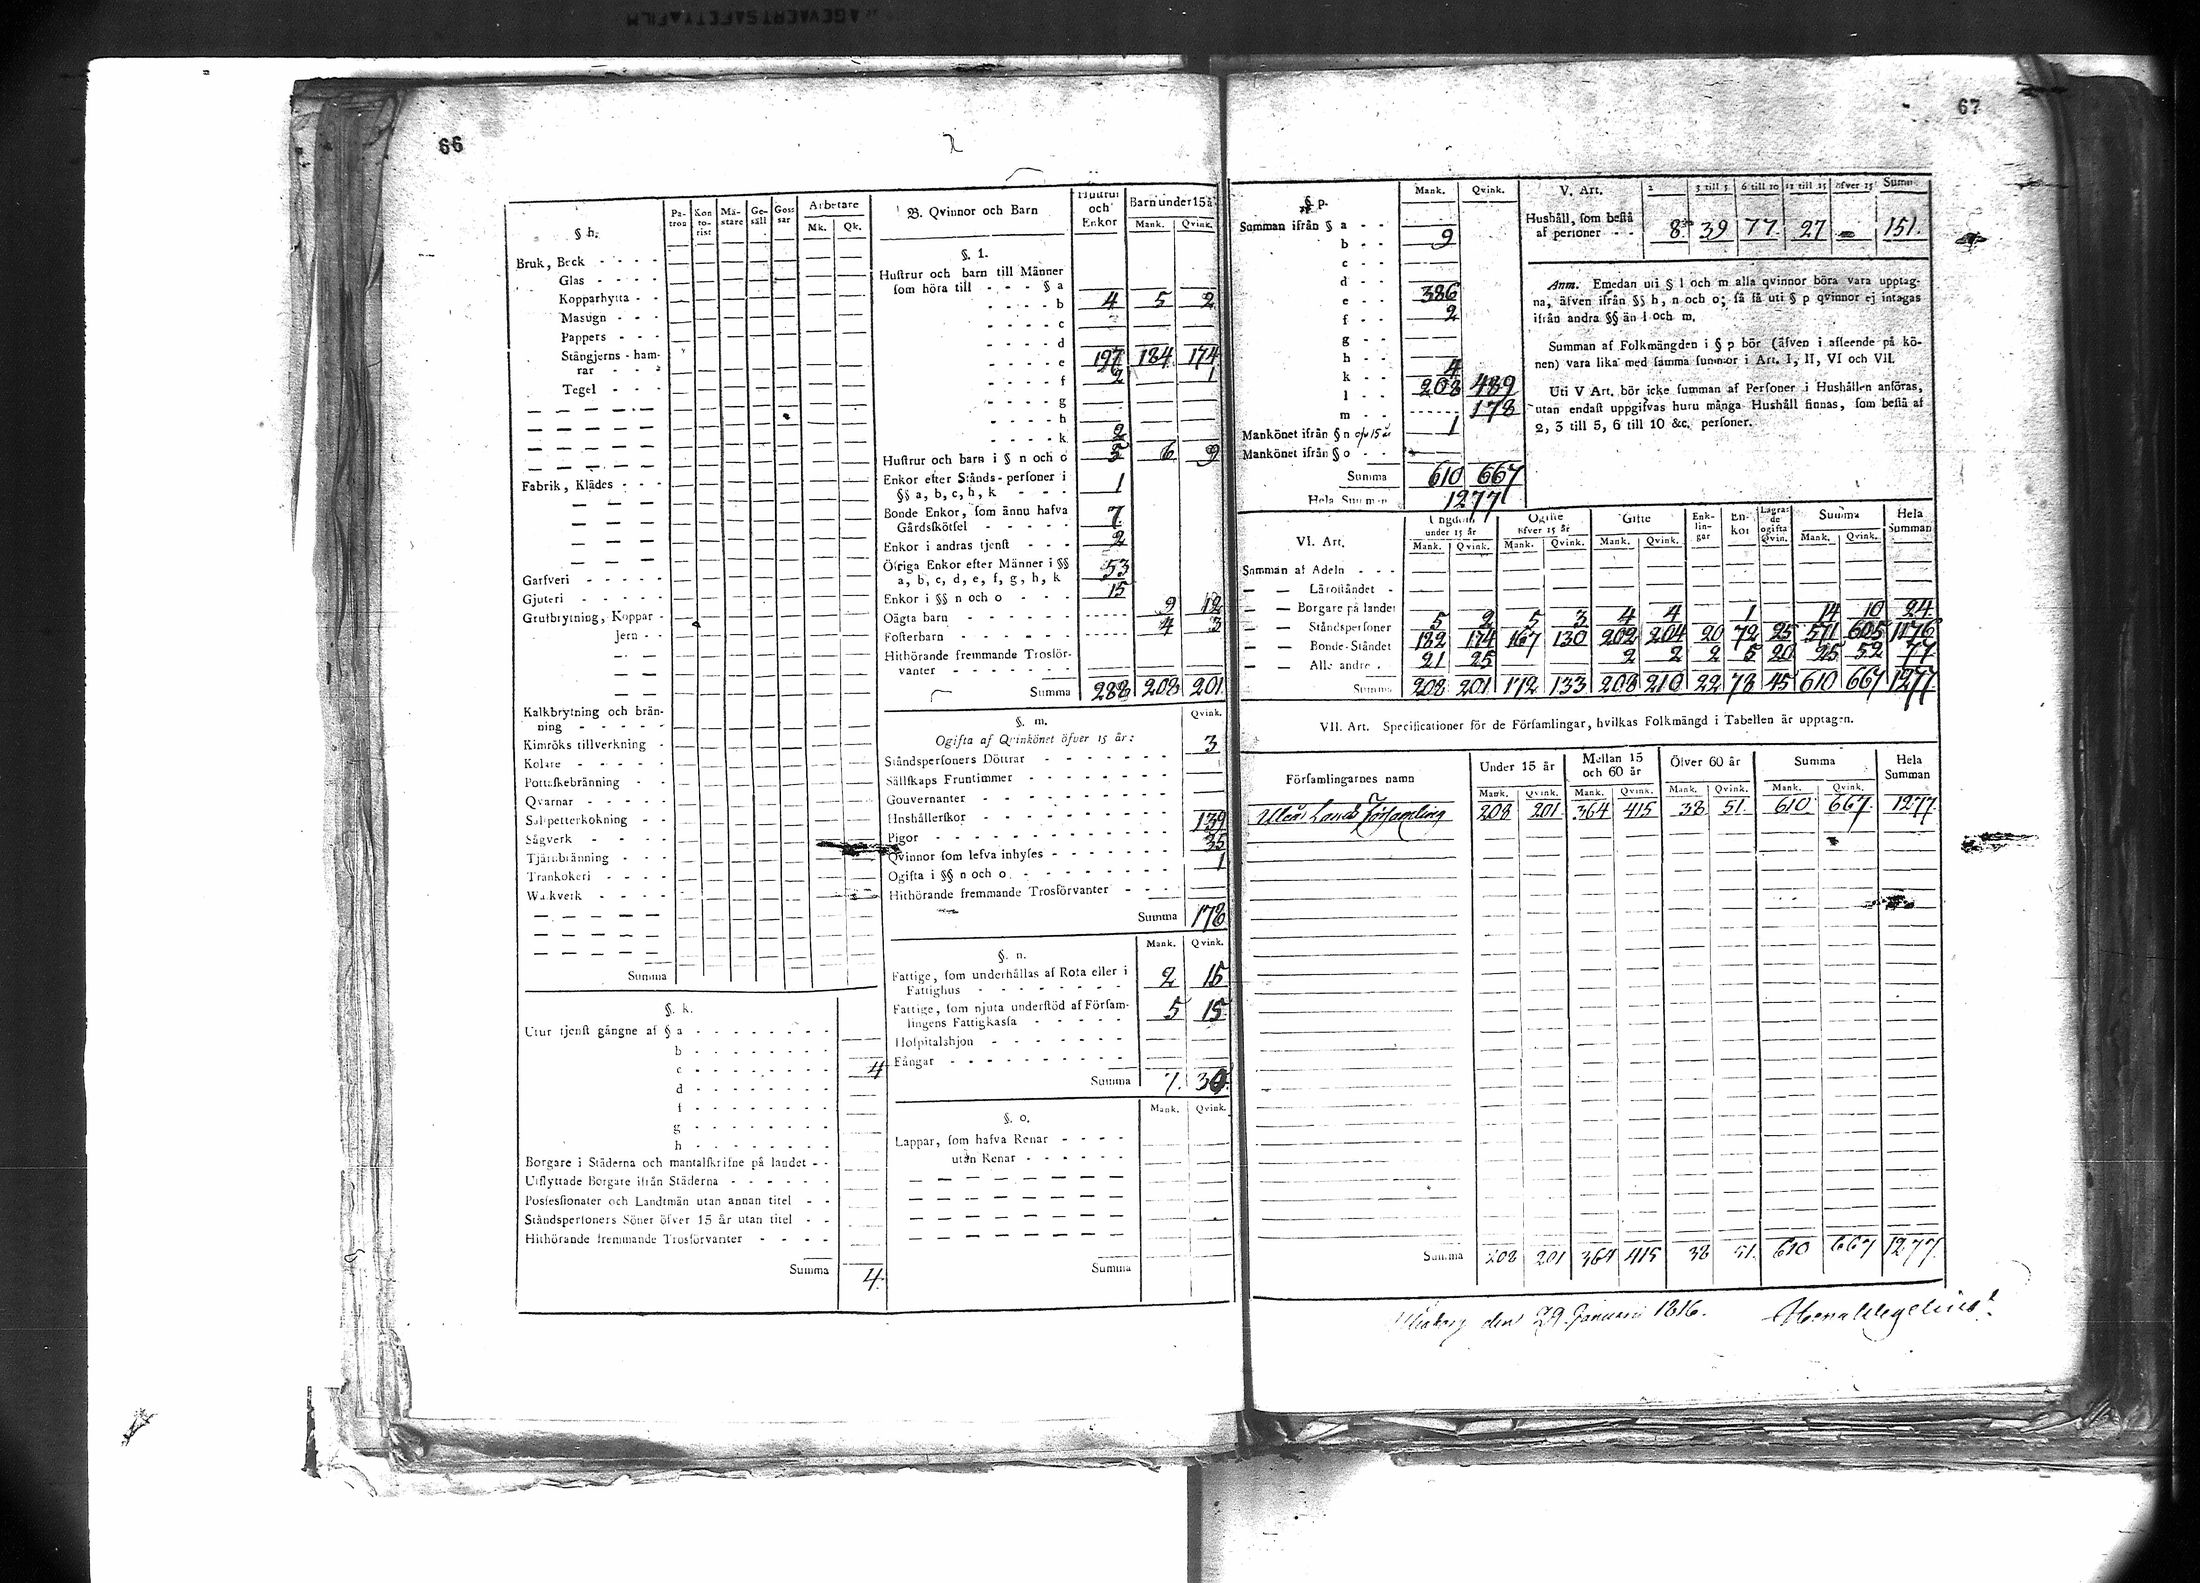 66
§ h. Patron Kontorist Mästare Gesäll Gossar Arbetare
Mk. Qk.
Bruk, Beck - - - -
Glas - - - -
Kopparhytta - -
Masugn - - -
Pappers - - -
Stångjerns-ham-
rar - - -
Tegel - - -
Fabrik, Klädes - - -
Garfveri - - - - -
Gjuteri - - - - -
Grufbrytning, Koppar -
jern - -
Kalkbrytning och brän-
ning - - - - -
Kimröks tillverkning -
Kolare - - - - -
Pottaskebränning - -
Qvarnar - - - - -
Salpetterkokning - -
Sågverk - - - - -
Tjärubränning - - -
Trankokeri - - - -
Walkverk - - - -
Summa
§. k.
Utur tjenst gångne af § a - - - - - - - -
b - - - - - - - -
c - - - - - - - - 4
d - - - - - - - -
f - - - - - - - -
g - - - - - - - -
h - - - - - - - -
Borgare i Städerna och mantalskrifne på landet - -
Utflyttade Borgare ifrån Städerna - - - - - -
Possessionater och Landtmän utan annan titel - -
Ståndspersoners Söner öfver 15 år utan titel - -
Hithörande fremmande Trosförvanter - - - -
Summa 4.
B. Qvinnor och Barn Hustrur och Enkor Barn under 15 å
Mank. Qvink.
§. 1.
Hustrur och barn till Männer
som höra till - - - § a
- - - - b 4 5 2
- - - - c
- - - - d
- - - - e 197 184 174
- - - - f 2 1
- - - - g
- - - - h
- - - - k 2
Hustrur och barn i § n och o 5 6 9
Enkor efter Stånds-personer i
§§ a, b, c, h, k - - - 1
Bonde Enkor, som ännu hafva
Gårdskötsel - - - - - 7.
Enkor i andras tjenst - - - 2
Öfriga Enkor efter Männer i §§
a, b, c, d, e, f, g, h, k 53
Enkor i §§ n och o - - - 15
Oägta barn - - - - - - 9 12
Fosterbarn - - - - - - 4 3
Hithörande fremmande Trosför-
vanter - - - - - -
Summa 288 208 201
§. m. Qvink.
Ogifta af Qvinkönet öfver 15 år:
Ståndspersoners Döttrar - - - - - - - 3
Sällskaps Fruntimmer - - - - - - - -
Gouvernanter - - - - - - - - - -
Hushållerskor - - - - - - - - - -
Pigor - - - - - - - - - - - 139
Qvinnor som lefva inhyses - - - - - - - 35
Ogifta i §§ n och o - - - - - - - - 1
Hithörande fremmande Trosförvanter - - - -
Summa 178
Mank. Qvink.
§. n.
Fattige, som underhållas af Rota eller i
Fattighus - - - - - - - - 2 15
Fattige, som njuta understöd af Försam-
lingens Fattigkassa - - - - - 5 15
Hospitalshjon - - - - - - - -
Fångar - - - - - - - - - -
Summa 7. 30
Mank. Qvink.
§. o.
Lappar, som hafva Renar - - - -
utan Renar - - - - - -
Summa
67
§ p. Mank. Qvink.
Summan ifrån § a - -
b - - 9
c - -
d - -
e - - 386
f - - 2
g - -
h - -
k - - 4
l - - 208 489
m - - 178
Mankönet ifrån § n öfv 15 år 1
Mankönet ifrån § o - -
Summa 610 667
Hela Summan 1277
V. Art. 2 3 till 5 6 till 10 11 till 15 öfver 15 Summ.
Hushåll, som bestå
af personer - - 8. 39 77 27 151.
Anm. Emedan uti § l och m alla qvinnor böra vara upptag-
na, äfven ifrån §§ h, n och o; så få uti § p qvinnor ej intagas
ifrån andra §§ än l och m.
Summan af Folkmängden i § p bör (äfven i afseende på kö-
nen) vara lika med samma summor i Art. I, II, VI och VII.
Uti V Art. bör icke summan af Personer i Hushållen anföras,
utan endast uppgifvas huru många Hushåll finnas, som bestå af
2, 3 till 5, 6 till 10 &c. personer.
VI. Art. Ungdom under 15 år Ogifte öfver 15 år Gifte Enklingar Enkor Lägrade ogifta Qvin. Summa Hela Summan
Mank. Qvink. Mank. Qvink. Mank. Qvink. Mank. Qvink.
Summan af Adeln - - -
— — Läroståndet -
— — Borgare på landet
— — Ståndspersoner 5 2 5 3 4 4 1 14 10 24.
— — Bonde-Ståndet 182 174 167 130 202 204 20 72 25 571 605 1176
— — Alle andre - 21 25 2 2 2 5 20 25 52 77
Summa 208 201 172 133 208 210 22 78 45 610 667 1277.
VII. Art. Specificationer för de Församlingar, hvilkas Folkmängd i Tabellen är upptagen.
Församlingarnes namn Under 15 år Mellan 15 och 60 år Öfver 60 år Summa Hela Summan
Mank. Qvink. Mank. Qvink. Mank. Qvink. Mank. Qvink.
Uleå Lands Församling 208 201. 364 415 38 51. 610 667. 1277.
Summa 208 201 364 415 38 51. 610 667 1277.
Uleåborg den 29. Januarii 1816.